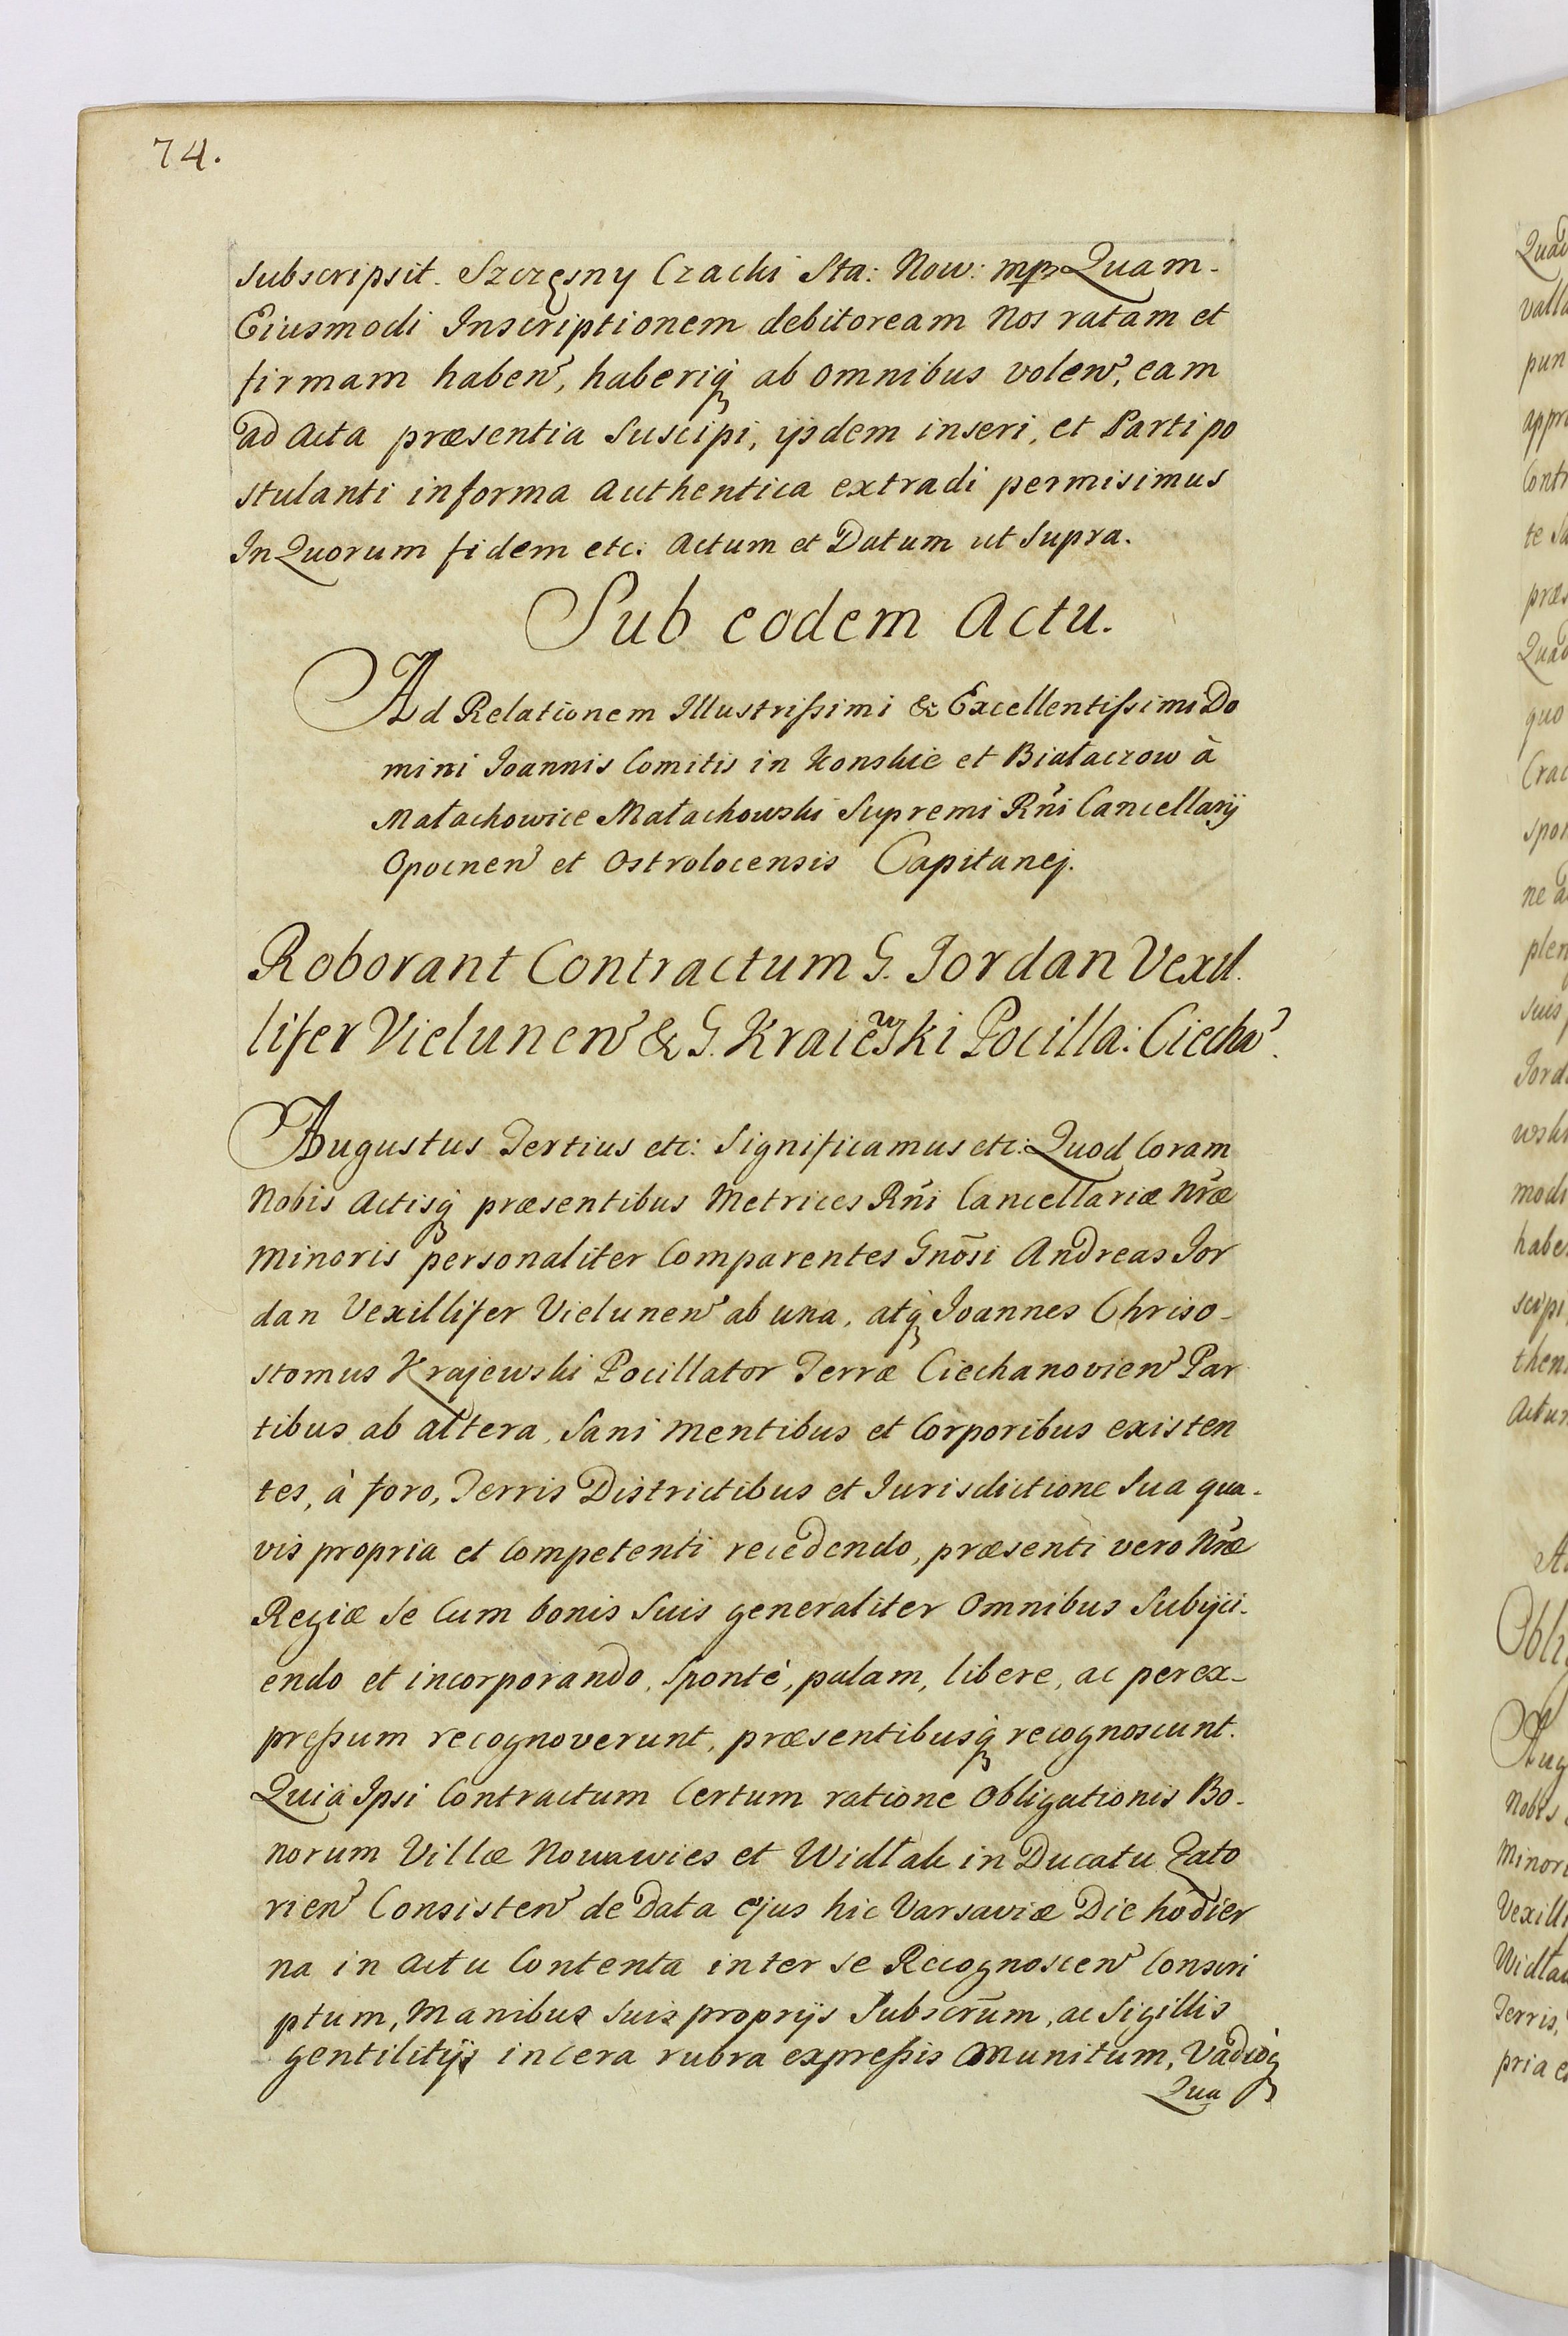 74.
subscripsit. Szczęsny Czacki Sta: Now: mpp Quam-
Eiusmodi Inscriptionem debitoream Nos ratam et
firmam haben̄, haberiq́ʒ ab omnibus volen̄, eam
ad acta præsentia Suscipi, ijsdem inseri, et Parti po
stulanti informa authentica extradi permisimus
In Quorum fidem etc: Actum et Datum ut Supra.
Sub eodem Actu.
Ad Relationem Illustriſsimi & Excellentiſsimi Do
mini Joannis Comitis in Konskie et Białaczow à
Małachowice Małachowski Supremi Rñi Cancellarij
Opocnen̄ et Ostrolocensis Capitanej.
Roborant Contractum G. Jordan Vexil.
lifer Vielunen̄ & G. Kraiewski Pocilla: Ciechan̄.
Augustus Tertius etc: Significamus etc: Quod Coram
Nobis Actisq́ʒ præsentibus Metrices Rñi Cancellariæ Nr̃æ
Minoris personaliter Comparentes Gnõsi Andreas Jor
dan Vexillifer Vielunen̄ ab una, atq́ʒ Joannes Chriso-
stomus Krajewski Pocillator Terræ Ciechanovien̄ Par
tibus ab altera, Sani mentibus et Corporibus existen
tes, à foro, Terris Districtibus et Jurisdictione Sua qua-
vis propria et Competenti recedendo, præsenti vero Nr̃æ
Regiæ se Cum bonis Suis generaliter Omnibus Subijci-
endo et incorporando, Spontè, palam, libere, ac perex-
preſsum recognoverunt, præsentibusq́ʒ recognoscunt.
Quia Ipsi Contractum Certum ratione Obligationis Bo-
norum Villæ Nowawies et Widłak in Ducatu Zato
rien̄ Consisten̄ de Data ejus hic Varsaviæ Die hodier
na in actu Contenta inter se Recognoscen̄ Conscri
ptum, Manibus suis proprijs Subscr̃um, ac Sigillis
gentilitijs incera rubra expreſsis Omunitum, Vadioq́ʒ
Qua